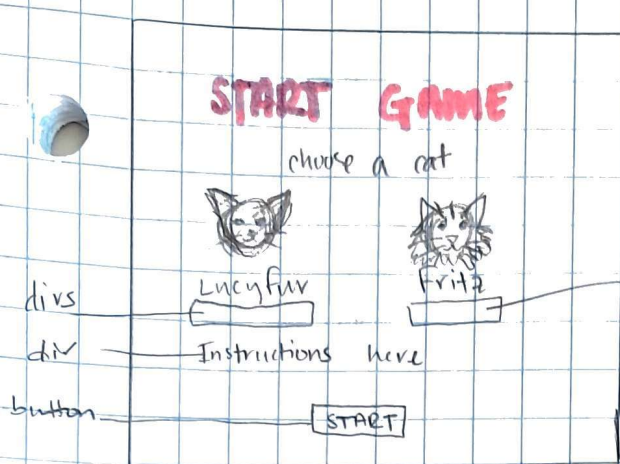 START GAME
choose a cat
Lucyfur Fritz
divs
div Instructions here
button START